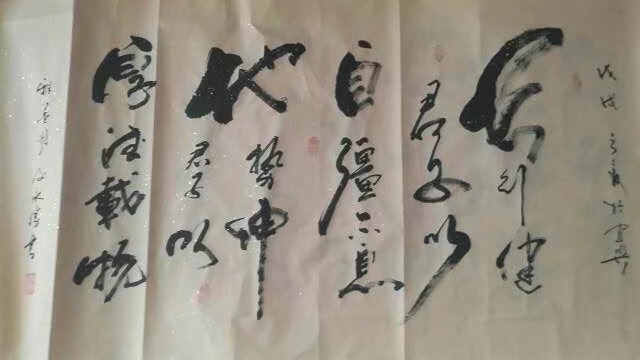 戊戌
天行健
君子以
自疆不息
地势坤
君子以
厚德载物
书